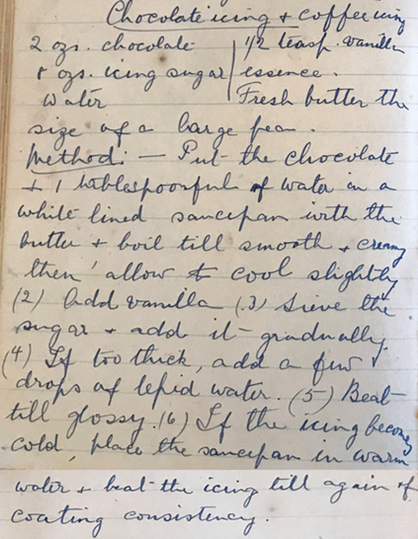 Chocolate icing + coffee icing
2 ozs. chocolate | 1/2 teasp. vanilla
8 ozs. icing sugar | essence.
water | Fresh butter the
size of a large pea.
Method: — Put the chocolate
+ 1 tablespoonful of water in a
white lined saucepan with the
butter + boil till smooth + creamy
then allow to cool slightly
(2) Add vanilla (3) Sieve the
sugar + add it gradually.
(4) If too thick, add a few
drops of tepid water. (5) Beat
till glossy. (6) If the icing becomes
cold, place the saucepan in warm
water + beat the icing till again of
coating consistency.